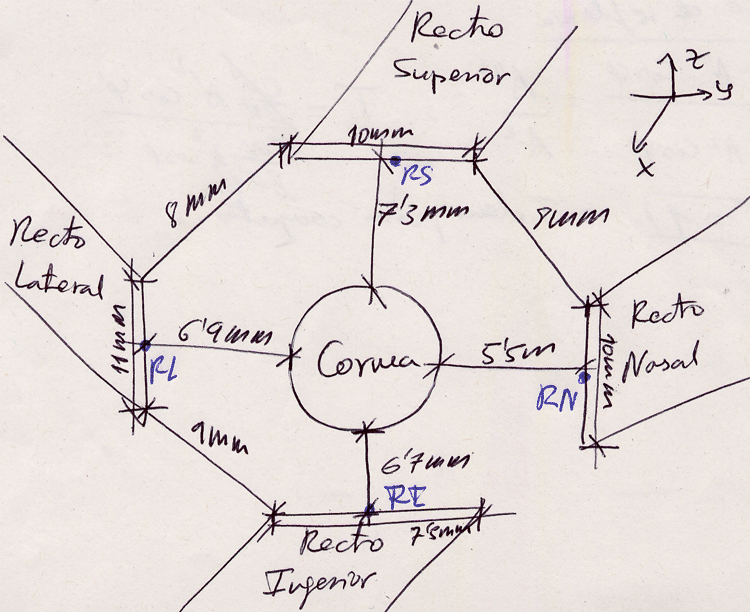 Recto
Superior
Z
y
x
10mm
RS
8mm
7'3mm
8mm
Recto
Lateral
11mm
6'9mm
RL
Cornea
5'5m
RN
10mm
Recto
Nasal
9mm
6'7mm
RI
7'5mm
Recto
Inferior